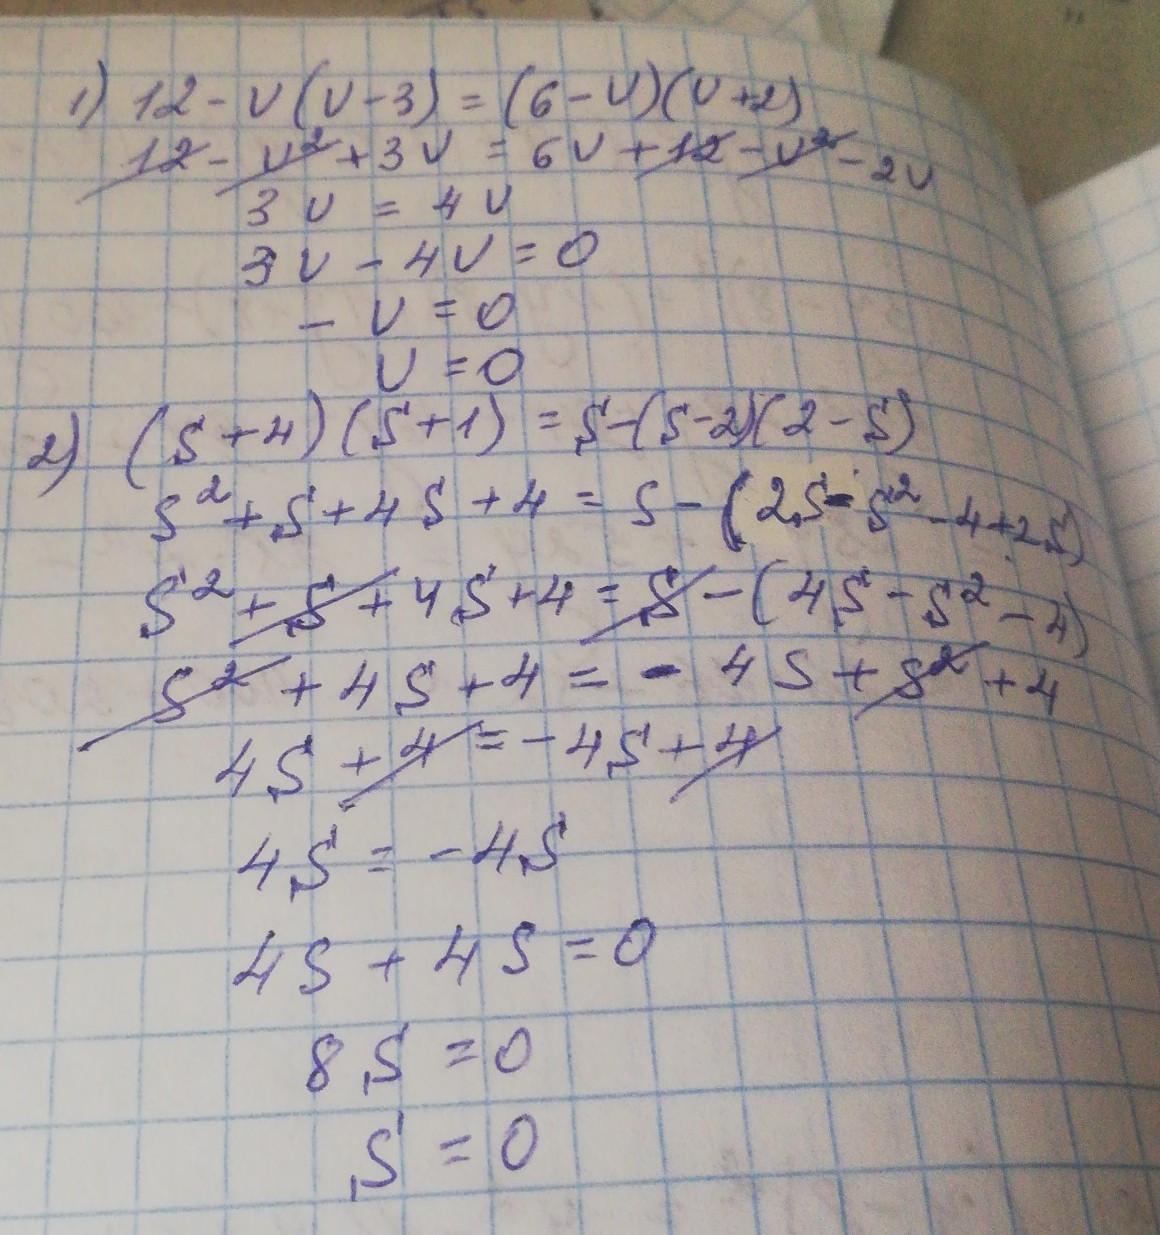 1) 12 - v(v-3) = (6-v)(v+2)
12 - v² + 3v = 6v + 12 - v² - 2v
3v = 4v
3v - 4v = 0
- v = 0
v = 0
2) (s+4)(s+1) = s-(s-2)(2-s)
s² + s + 4s + 4 = s - (2s - s² - 4 + 2s)
s² + s + 4s + 4 = s - (4s - s² - 4)
s² + 4s + 4 = - 4s + s² + 4
4s + 4 = -4s + 4
4s = -4s
4s + 4s = 0
8s = 0
s = 0